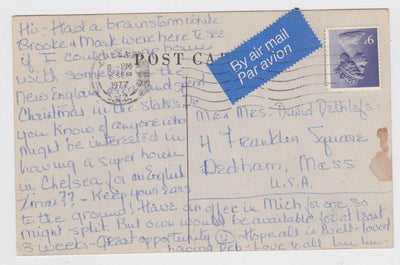 Hi - Had a brainstorm while
Brooke & Mark were here to see
if I could swap houses
with someone in the
New England and spend
Christmas in the States. Do
you know of anyone who
might be interested in
having a super house
in Chelsea for an English
Xmas?? - Keep your ears
to the ground! Have an offer in Mich. for one so
might split. But own would be available for at least
3 weeks - Great opportunity Hope all is well - loved
having Deb - Love to all
POST CARD
By air mail
Par avion
9P
1977
Mr & Mrs. David Dethlefs
4 Franklin Square
Dedham, Mass
U.S.A.